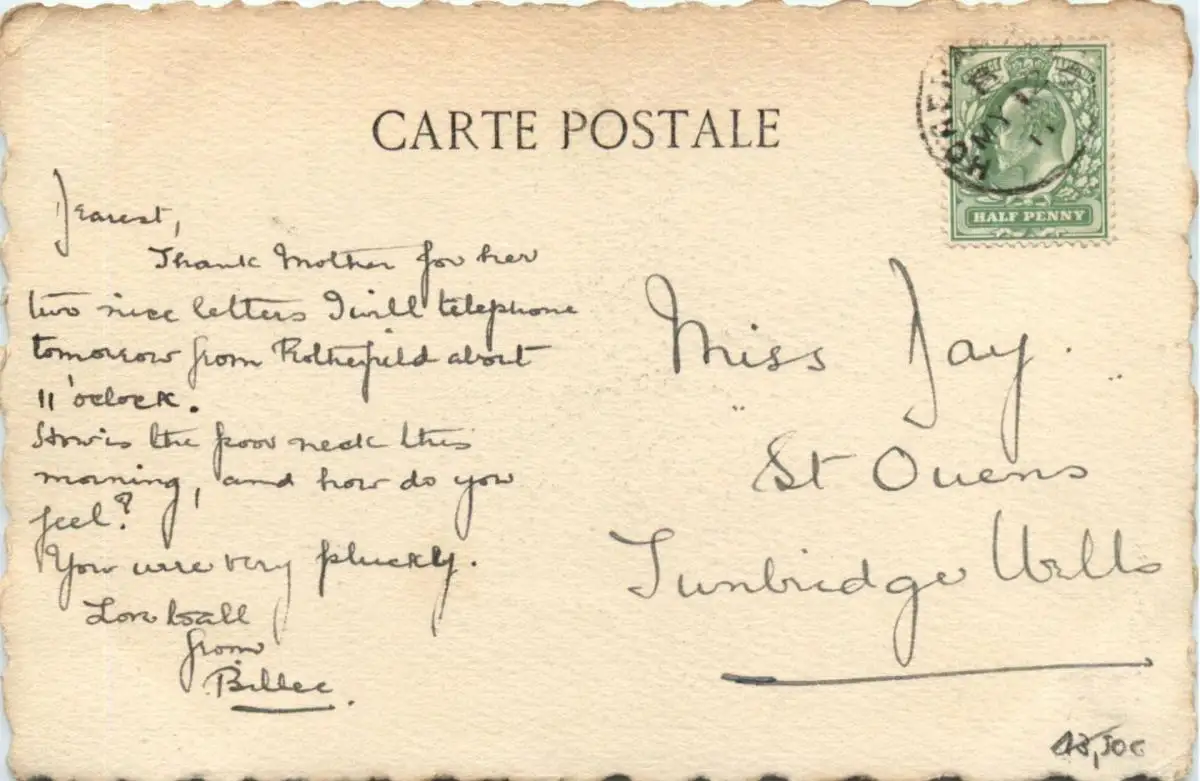 CARTE POSTALE
HOREHAM
MY 12
11
POSTAGE
HALF PENNY
Dearest,
Thank Mother for her
two nice letters I will telephone
tomorrow from Rotherfield about
11 'oclock.
How is the poor neck this
morning, and how do you
feel?
You were very pluckly.
Love to all
from
Billee.
Miss Jay.
St Ouens
Tunbridge Wells